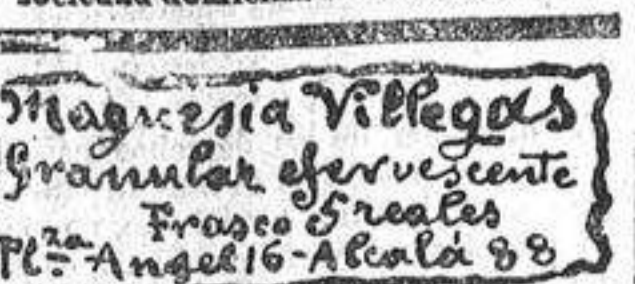 Magnesia Villegas
Granular efervescente
Frasco 5 reales
Pl.za Angel 16-Alcalá 88